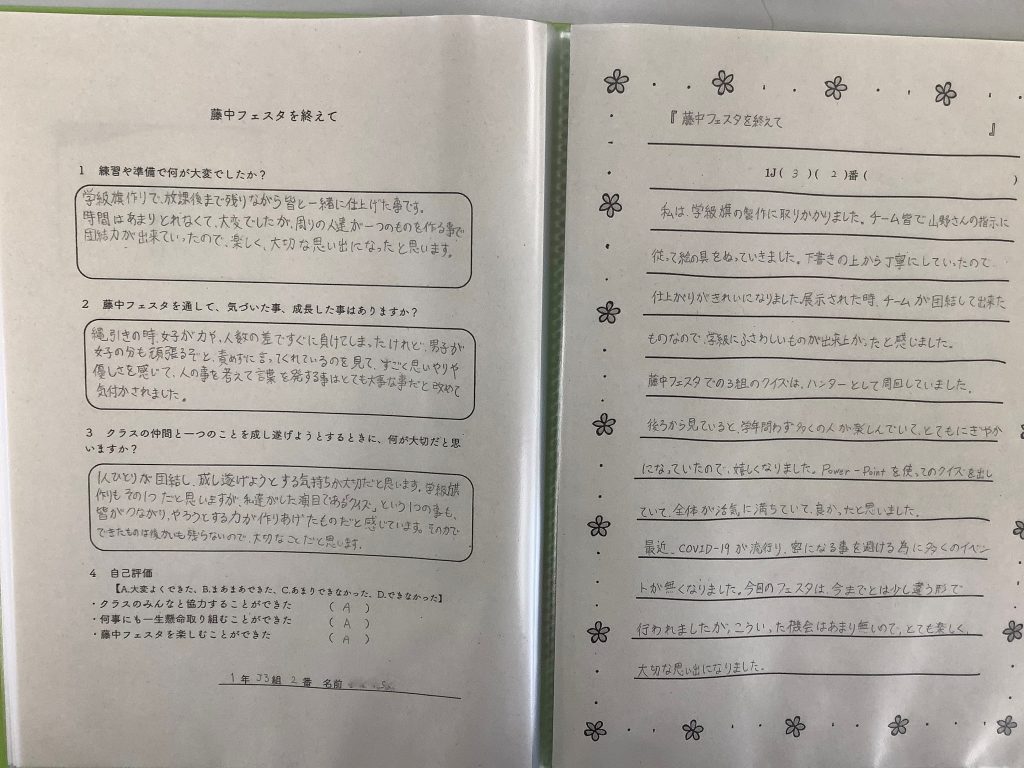 藤中フェスタを終えて
1 練習や準備で何が大変でしたか？
学級旗作りで、放課後まで残りながら皆と一緒に仕上げた事です。
時間はあまりとれなくて、大変でしたが、周りの人達が一つのものを作る事で
団結力が出来ていったので、楽しく、大切な思い出になったと思います。
2 藤中フェスタを通して、気づいた事、成長した事はありますか？
縄引きの時、女子が力や、人数の差ですぐに負けてしまったけれど、男子が
女子の分も頑張るぞと、責めずに言ってくれているのを見て、すごく思いやりや
優しさを感じて、人の事を考えて言葉を発する事はとても大事な事だと改めて
気付かされました。
3 クラスの仲間と一つのことを成し遂げようとするときに、何が大切だと思
いますか？
1人ひとりが団結し、成し遂げようとする気持ちが大切だと思います。学級旗
作りもその1つだと思いますが、私達がした演目である「クイズ」という1つの事も、
皆がつながり、やろうとする力が作りあげたものだと感じています。その力で
できたものは後かいも残らないので、大切なことだと思います。
4 自己評価
【A.大変よくできた、B.まあまあできた、C.あまりできなかった、D.できなかった】
・クラスのみんなと協力することができた （ A ）
・何事にも一生懸命取り組むことができた （ A ）
・藤中フェスタを楽しむことができた （ A ）
1年 J3組 2番 名前
『 藤中フェスタを終えて 』
1J( 3 )( 2 )番( )
私は、学級旗の製作に取りかかりました。チーム皆で山野さんの指示に
従って絵の具をぬっていきました。下書きの上から丁寧にしていったので
仕上がりがきれいになりました。展示された時、チームが団結して出来た
ものなので、学級にふさわしいものが出来上がったと感じました。
藤中フェスタでの3組のクイズは、ハンターとして周回していました。
後ろから見ていると、学年問わず多くの人が楽しんでいて、とてもにぎやか
になっていたので、嬉しくなりました。Power-Pointを使ってのクイズを出し
ていて、全体が活気に満ちていて、良かったと思いました。
最近、COVID-19が流行り、密になる事を避ける為に多くのイベン
トが無くなりました。今回のフェスタは、今までとは少し違う形で
行われましたが、こういった機会はあまり無いので、とても楽しく、
大切な思い出になりました。